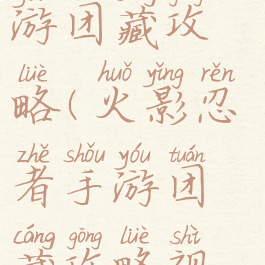 游团藏攻
lüè huǒ yǐng rěn
略(火影忍
zhě shǒu yóu tuán
者手游团
cáng gōng lüè shì
藏攻略视